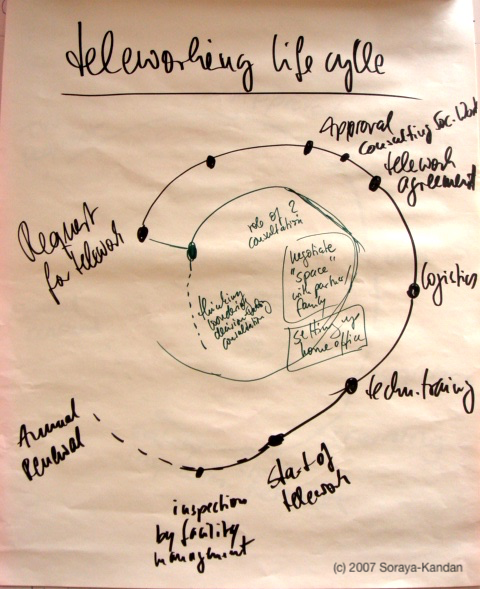 teleworking life cycle
Approval
consulting Soc. Work
telework
agreement
Request
for telework
role of ?
consultation
negotiate
"space"
with partner/
family
Logistics
thinking
decision taking
consultation
setting up
home office
techn. training
Annual
Renewal
Start of
telework
inspection
by facility
management
(c) 2007 Soraya-Kandan